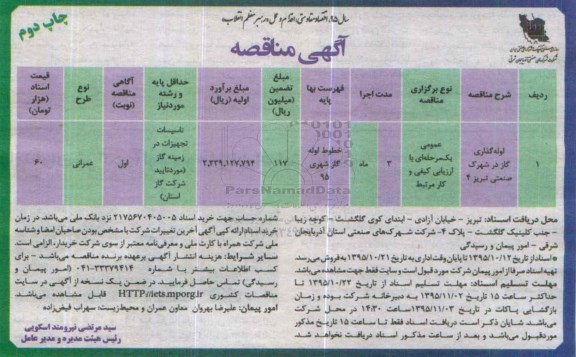 چاپ دوم
سال ۹۵، اقتصاد مقاومتی، اقدام و عمل «رهبر معظم انقلاب»
آگهی مناقصه
ردیف
شرح مناقصه
نوع برگزاری مناقصه
مدت اجرا
فهرست بها پایه
مبلغ تضمین (میلیون ریال)
مبلغ برآورد اولیه (ریال)
حداقل پایه و رشته موردنیاز
آگاهی مناقصه (نوبت)
نوع طرح
قیمت اسناد (هزار تومان)
۱
لوله‌گذاری گاز در شهرک صنعتی تبریز ۴
عمومی یک‌مرحله‌ای با ارزیابی کیفی و کار مرتبط
۳ ماه
خطوط لوله گاز شهری ۹۵
۱۱۷
۲,۳۳۹,۱۲۷,۷۹۴
تاسیسات تجهیزات در زمینه گاز (موردتایید شرکت گاز استان)
اول
عمرانی
۶۰
ParsNamadData
محل دریافت اسناد: تبریز - خیابان آزادی - ابتدای کوی گلگشت - کوچه زیبا
- جنب کلینیک گلگشت - پلاک ۴- شرکت شهرک‌های صنعتی استان آذربایجان
شرقی - امور پیمان و رسیدگی
*اسناد از تاریخ ۱۳۹۵/۱۰/۱۲ تا پایان وقت اداری به تاریخ ۱۳۹۵/۱۰/۲۱ به فروش می‌رسد.
تهیه اسناد صرفا از امور پیمان شرکت مورد قبول است و سایت فقط جهت مشاهده می‌باشد.
مهلت تسلیم اسناد: مهلت تسلیم اسناد از تاریخ ۱۳۹۵/۱۰/۲۲ تا
حداکثر ساعت ۱۵ تاریخ ۱۳۹۵/۱۱/۰۲ به دبیرخانه شرکت بوده و زمان
بازگشایی پاکات در تاریخ ۱۳۹۵/۱۱/۰۳ ساعت ۱۴:۳۰ در محل شرکت
می‌باشد شایان ذکر است دریافت اسناد فقط تا ساعت ۱۵ تاریخ مذکور
موردقبول می‌باشد و بعد از ساعت مذکور اسناد دریافت نخواهد شد.
شماره حساب جهت خرید اسناد ۲۱۷۵۶۷۰۴۰۵۰۰۵ نزد بانک ملی می‌باشد. در زمان
خرید اسناد ارائه کپی آگهی آخرین تغییرات شرکت با مشخص بودن صاحبان امضا و شناسه
ملی شرکت همراه با کارت ملی و معرفی‌نامه معتبر از سوی شرکت خریدار، الزامی است.
سایر شرایط: هزینه انتشار آگهی برعهده برنده مناقصه می‌باشد - برای
کسب اطلاعات بیشتر با شماره ۳۳۳۷۹۴۱۴-۰۴۱ (امور پیمان و
رسیدگی) تماس حاصل فرمایید. در ضمن یک نسخه از آگهی در سایت
مناقصات کشوری HTTP//iets.mporg.ir قابل مشاهده می‌باشد.
امور پیمان: علیرضا بهروان معاون عمران و محیط‌زیست: سهراب فیض‌زاده
سید مرتضی نیرومند اسکویی
رئیس هیئت مدیره و مدیر عامل